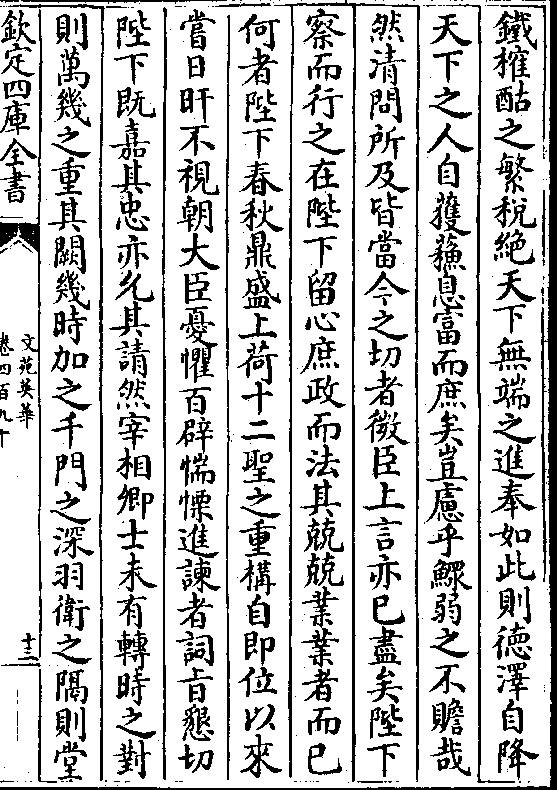 鐵搉酤之繁稅絶天下無端之進奉如此則徳澤自降
天下之人自蒦蘓息富而庶矣豈慮乎鰥弱之不贍哉
然清問所及皆當今之切者微臣上言亦已盡矣陛下
察而行之在陛下留心庶政而法其兢兢業業者而已
何者陛下春秋鼎盛上荷十二聖之重構自即位以來
嘗日旰不視朝大臣憂懼百辟惴慄進諫者詞㫖懇切
陛下既嘉其忠亦允其請然宰相卿士未有轉時之對
則萬幾之重其闕幾時加之千門之深羽衛之隔則堂
欽定四庫全書
文苑英華
卷四百九十
十三